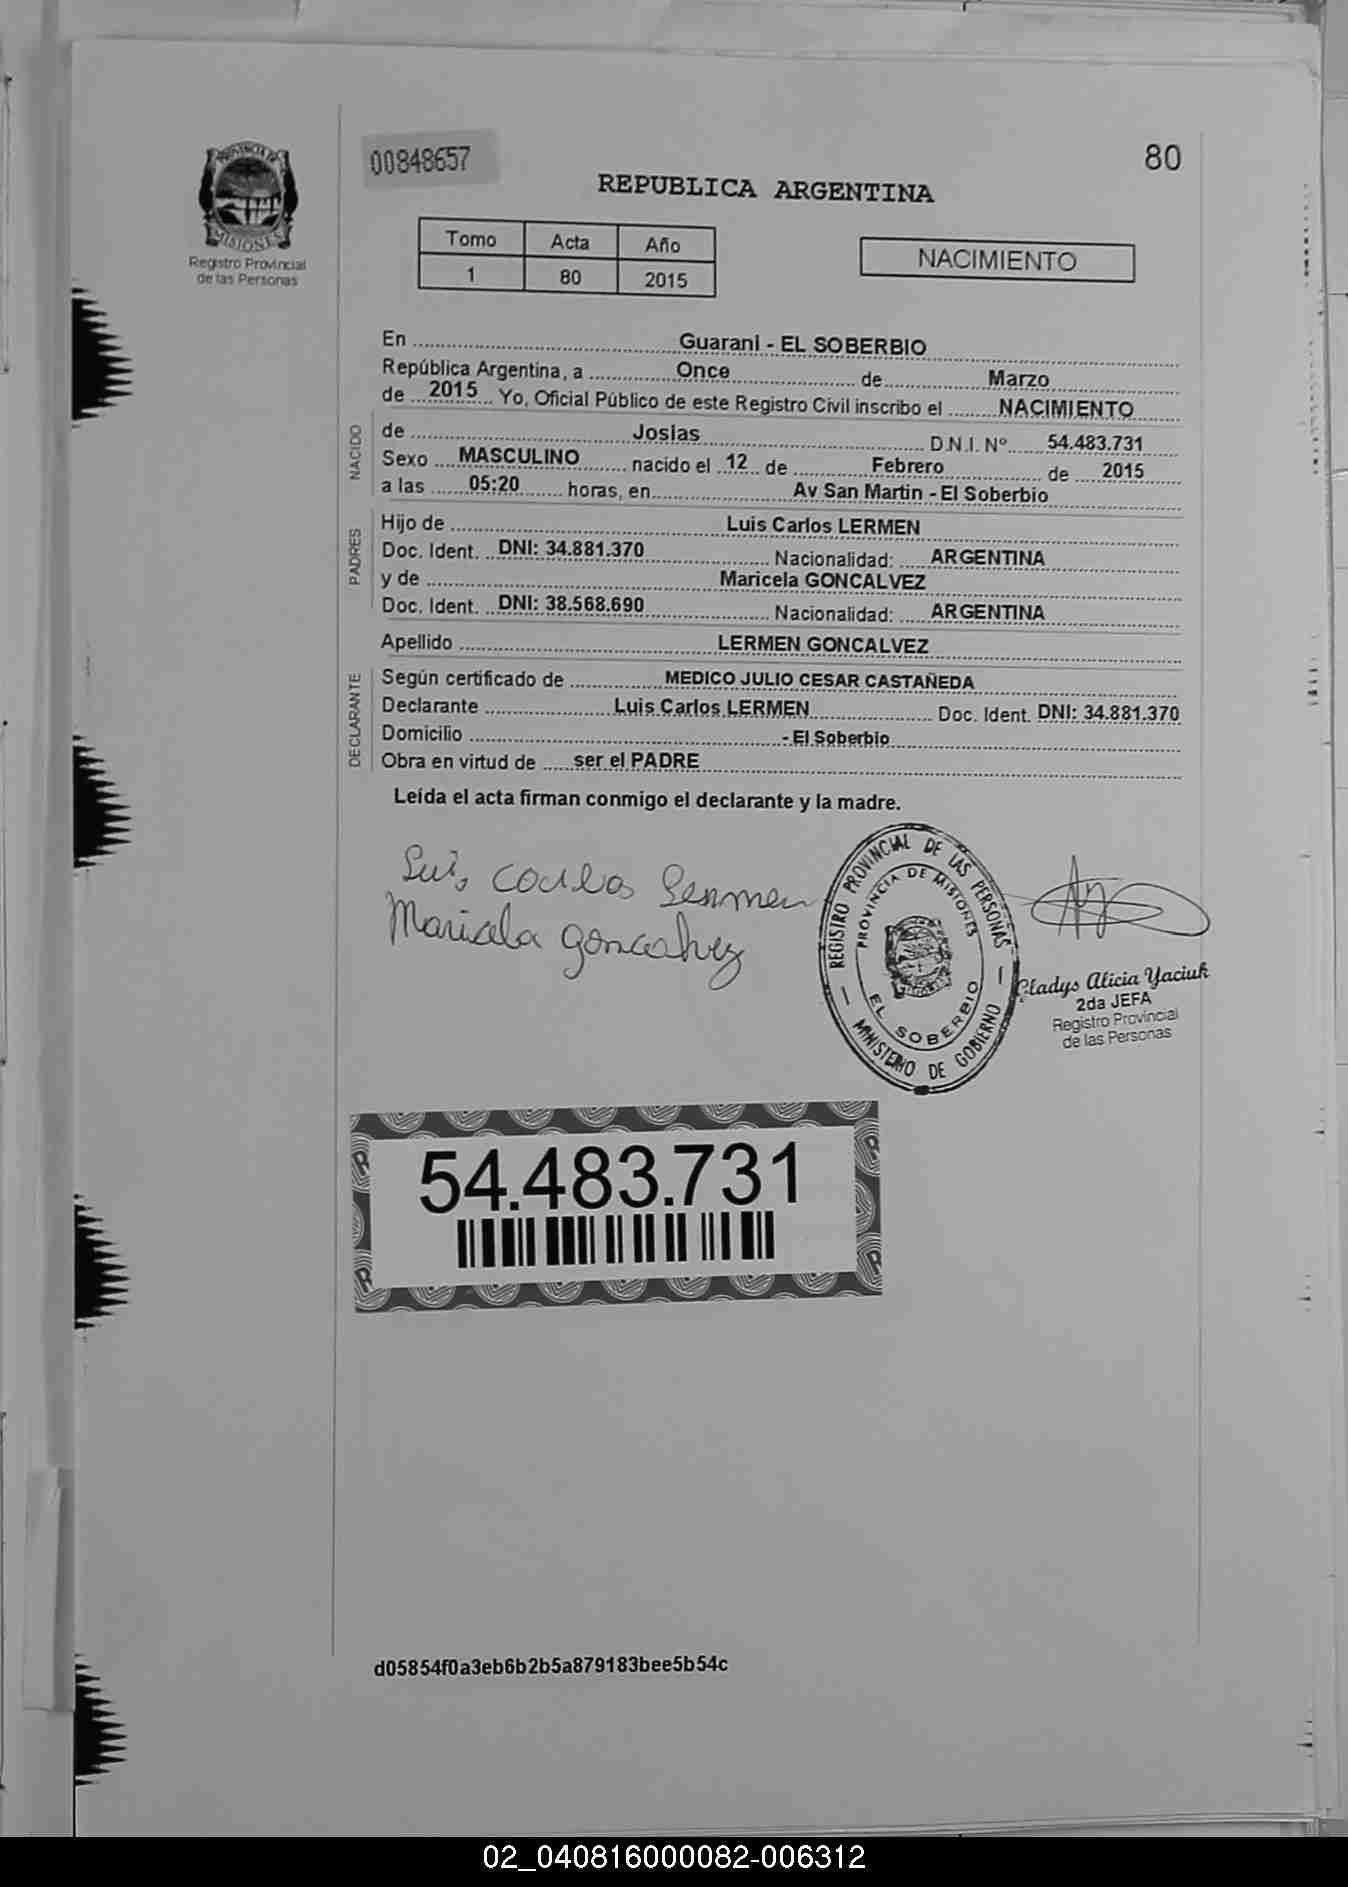 PROVINCIA DE
MISIONES
Registro Provincial
de las Personas
00848657
80
REPUBLICA ARGENTINA
Tomo Acta Año
1 80 2015
NACIMIENTO
En Guarani - EL SOBERBIO
República Argentina, a Once de Marzo
de 2015 Yo, Oficial Público de este Registro Civil inscribo el NACIMIENTO
NACIDO
de Josias D.N.I. Nº 54.483.731
Sexo MASCULINO nacido el 12 de Febrero de 2015
a las 05:20 horas, en Av San Martin - El Soberbio
PADRES
Hijo de Luis Carlos LERMEN
Doc. Ident. DNI: 34.881.370 Nacionalidad: ARGENTINA
y de Maricela GONCALVEZ
Doc. Ident. DNI: 38.568.690 Nacionalidad: ARGENTINA
Apellido LERMEN GONCALVEZ
DECLARANTE
Según certificado de MEDICO JULIO CESAR CASTAÑEDA
Declarante Luis Carlos LERMEN Doc. Ident. DNI: 34.881.370
Domicilio - El Soberbio
Obra en virtud de ser el PADRE
Leída el acta firman conmigo el declarante y la madre.
Luis Carlos Lermen
Maricela goncalvez
REGISTRO PROVINCIAL DE LAS PERSONAS
PROVINCIA DE MISIONES
EL SOBERBIO
MINISTERIO DE GOBIERNO
Gladys Alicia Yaciuk
2da JEFA
Registro Provincial
de las Personas
54.483.731
d05854f0a3eb6b2b5a879183bee5b54c
02_040816000082-006312